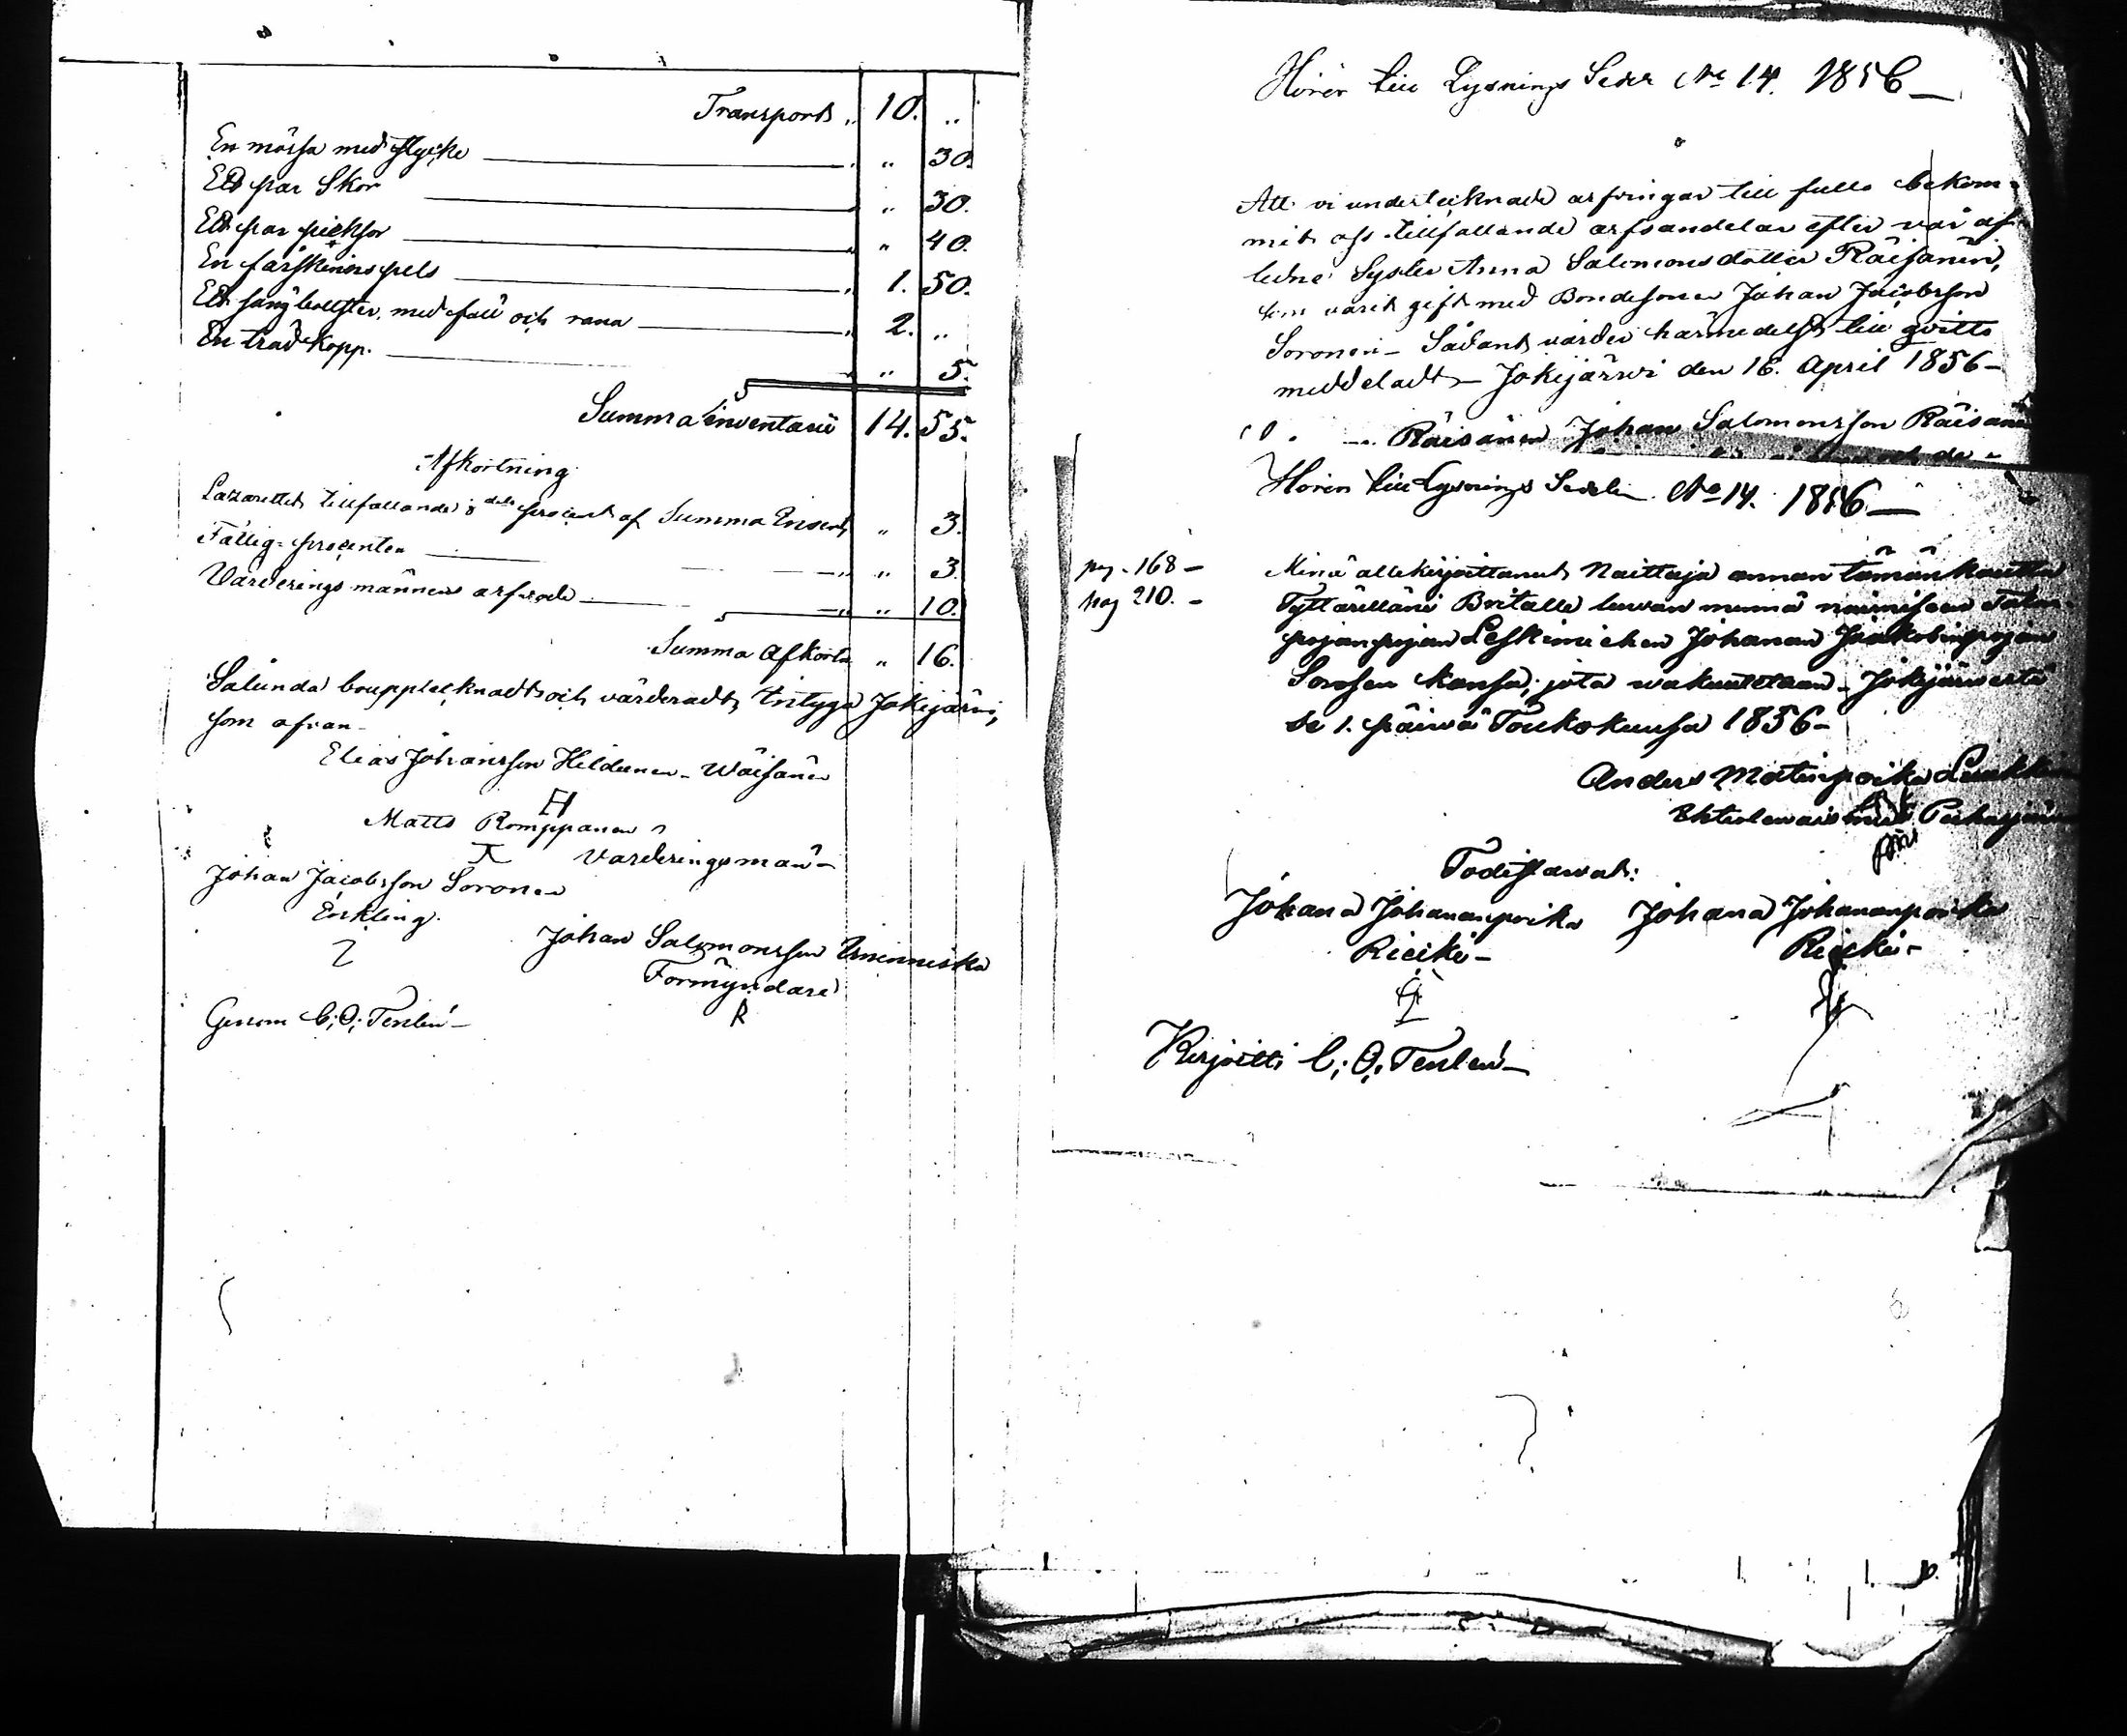 Transport „ 10. „
En mössa med stycke „ „ 30.
Ett par Skor „ „ 30.
Ett par pieksor „ „ 40.
En fårskinns pels „ 1. 50.
Ett sängbolster, med fäll och rana „ 2. „
En träd kopp. „ „ 5.
Summa inventarii 14. 55.
Afkortning
Lazarettet tillfallande 8 dels procent af Summa „ 3.
Fattig-procenten „ „ 3.
Värderings männers arfvode „ „ 10.
Summa Afkortn „ 16.
Sålunda bouppteknadt och värderadt, intyga Jokijärvi,
som ofvan-
Elias Johansson Heldunen - Wäisänen
Matts Romppanen
Värderingsmän-
Johan Jacobsson Soronen
Enkling.
Johan Salomonsson
Förmyndare
Genom C; O; Teslen-
Hörer till Lysnings Sedel No 14. 1856_
Att vi underteiknade arfvingar till fullo bekom-
mit oss tillfallande arfsandelar efter vår af-
ledne Syster Anna Salomonsdotter Räisänen,
som varit gift med Bondesonen Johan Jacobsson
Soronen - Sådant varder härmedelst till qvitto
meddeladt - Jokijärwi den 16. April 1856-
Räisänen Johan Salomonsson Räisänen
Hörer till Lysnings Sedeln No 14. 1856_
pag. 168 - Minä allekirjoittanut Naittaja annan tämän kautta
pag 210. - Tyttärelläni Britalle luvan mennä naimiseen Talon-
pojanpojan Leskimiehen Johanan Jaakobinpojan
Sorosen kansa; jota wakuutetaan - Jokijärwestä
se 1. päivä Toukokuusa 1856-
Anders Matinpoika
Todistawat:
Johana Johananpoika Johana Johananpoika
Riciki- Riciki-
Kirjoitti C; O; Teslen-